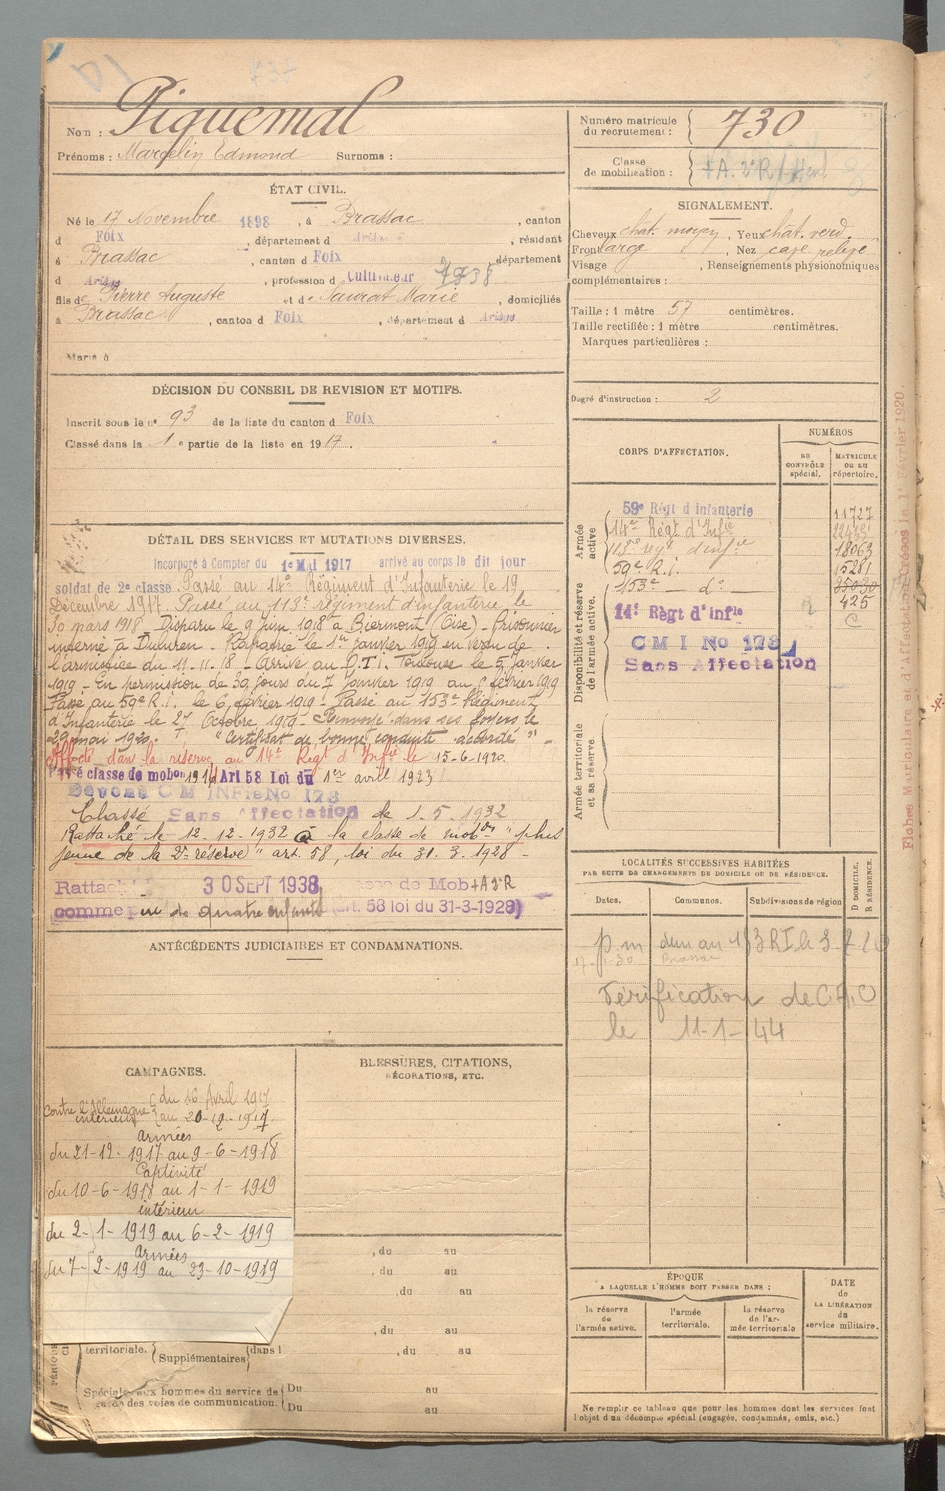 Nom : Piquemal
Prénoms : Marcelin Edmond Surnoms :
ÉTAT CIVIL.
Né le 17 Novembre 1898, à Brassac, canton
d Foix, département d Ariège, résidant
à Brassac, canton d Foix, département
d Ariège, profession d Cultivateur
fils de Pierre Auguste et de Saurat Marie, domiciliés
à Brassac, canton d Foix, département d Ariège
Marié à
DÉCISION DU CONSEIL DE REVISION ET MOTIFS.
Inscrit sous le n° 93 de la liste du canton d Foix
Classé dans la 1e partie de la liste en 1917.
DÉTAIL DES SERVICES ET MUTATIONS DIVERSES.
Incorporé à Compter du 1er Mai 1917 arrivé au corps le dit jour
soldat de 2e classe Passé au 14e Régiment d'Infanterie le 19
Décembre 1917. Passé au 113e régiment d'infanterie le
30 mars 1918 Disparu le 9 juin 1918 à Biermont (Oise) - Prisonnier
interné à Dulmen - Rapatrié le 1er janvier 1919 en vertu de
l'armistice du 11.11.18 - Arrivé au D.T.I. Toulouse le 5 janvier
1919 - En permission de 30 jours du 7 janvier 1919 au 6 février 1919
Passé au 59e R.I. le 6 février 1919 - Passé au 153e Régiment
d'Infanterie le 27 Octobre 1919 - Renvoyé dans ses foyers le
29 mai 1920. "Certificat de bonne conduite accordé" -
Affecté dans la réserve au 14e Régt d'Infie le 15-6-1920.
classe de mobon 1916 Art 58 Loi du 1er avril 1923
CM INFie No 173
Classé Sans Affectation de 1.5.1932
Rattaché le 12.12.1932 à la classe de mobon "plus
jeune de la 2e réserve" art. 58, loi du 31.3.1928 -
Rattach 30 SEPT 1938 de Mob +A 2eR
comme père de quatre enfants (art. 58 loi du 31-3-1928)
ANTÉCÉDENTS JUDICIAIRES ET CONDAMNATIONS.
CAMPAGNES.
Contre l'Allemagne du 16 Avril 1917
intérieur au 20-12-1917
armées
du 21-12-1917 au 9-6-1918
Captivité
du 10-6-1918 au 1-1-1919
intérieur
du 2-1-1919 au 6-2-1919
Armées
du 7-2-1919 au 23-10-1919
territoriale. Supplémentaires (dans l
Spéciale aux hommes du service de
garde des voies de communication.
Du au
Du au
BLESSURES, CITATIONS,
DÉCORATIONS, ETC.
, du au
, du au
, du au
, du au
, du au
Numéro matricule
du recrutement : 730
Classe
de mobilisation : +A. 2eR
SIGNALEMENT.
Cheveux chât. moyen, Yeux chât. verd.
Front large, Nez cave relevé
Visage , Renseignements physionomiques
complémentaires :
Taille : 1 mètre 57 centimètres.
Taille rectifiée : 1 mètre centimètres.
Marques particulières :
Degré d'instruction : 2
CORPS D'AFFECTATION.
NUMÉROS
AU CONTRÔLE spécial.
MATRICULE OU AU répertoire.
Armée active.
59e Régt d Infanterie 11727
14e Régt d'Infie
113e régt d'infie 18063
59e R.I. 15281
Disponibilité et réserve de l'armée active.
153e - d° - 25030
14e Règt d'Infie 425
C M I No 173
Sans Affectation
Armée territoriale et sa réserve
LOCALITÉS SUCCESSIVES HABITÉES
PAR SUITE DE CHANGEMENTS DE DOMICILE OU DE RÉSIDENCE.
Dates. Communes. Subdivisions de région
D DOMICILE.
R RÉSIDENCE.
Brassac
Vérification de
le 11-1-44
ÉPOQUE
A LAQUELLE L'HOMME DOIT PASSER DANS :
la réserve de l'armée active.
l'armée territoriale.
la réserve de l'armée territoriale
DATE
de
LA LIBÉRATION
du
service militaire.
Ne remplir ce tableau que pour les hommes dont les services font
l'objet d'un décompte spécial (engagés, condamnés, omis, etc.)
Fiches Matriculaire et d'Affectation Créées le 1er Février 1920.